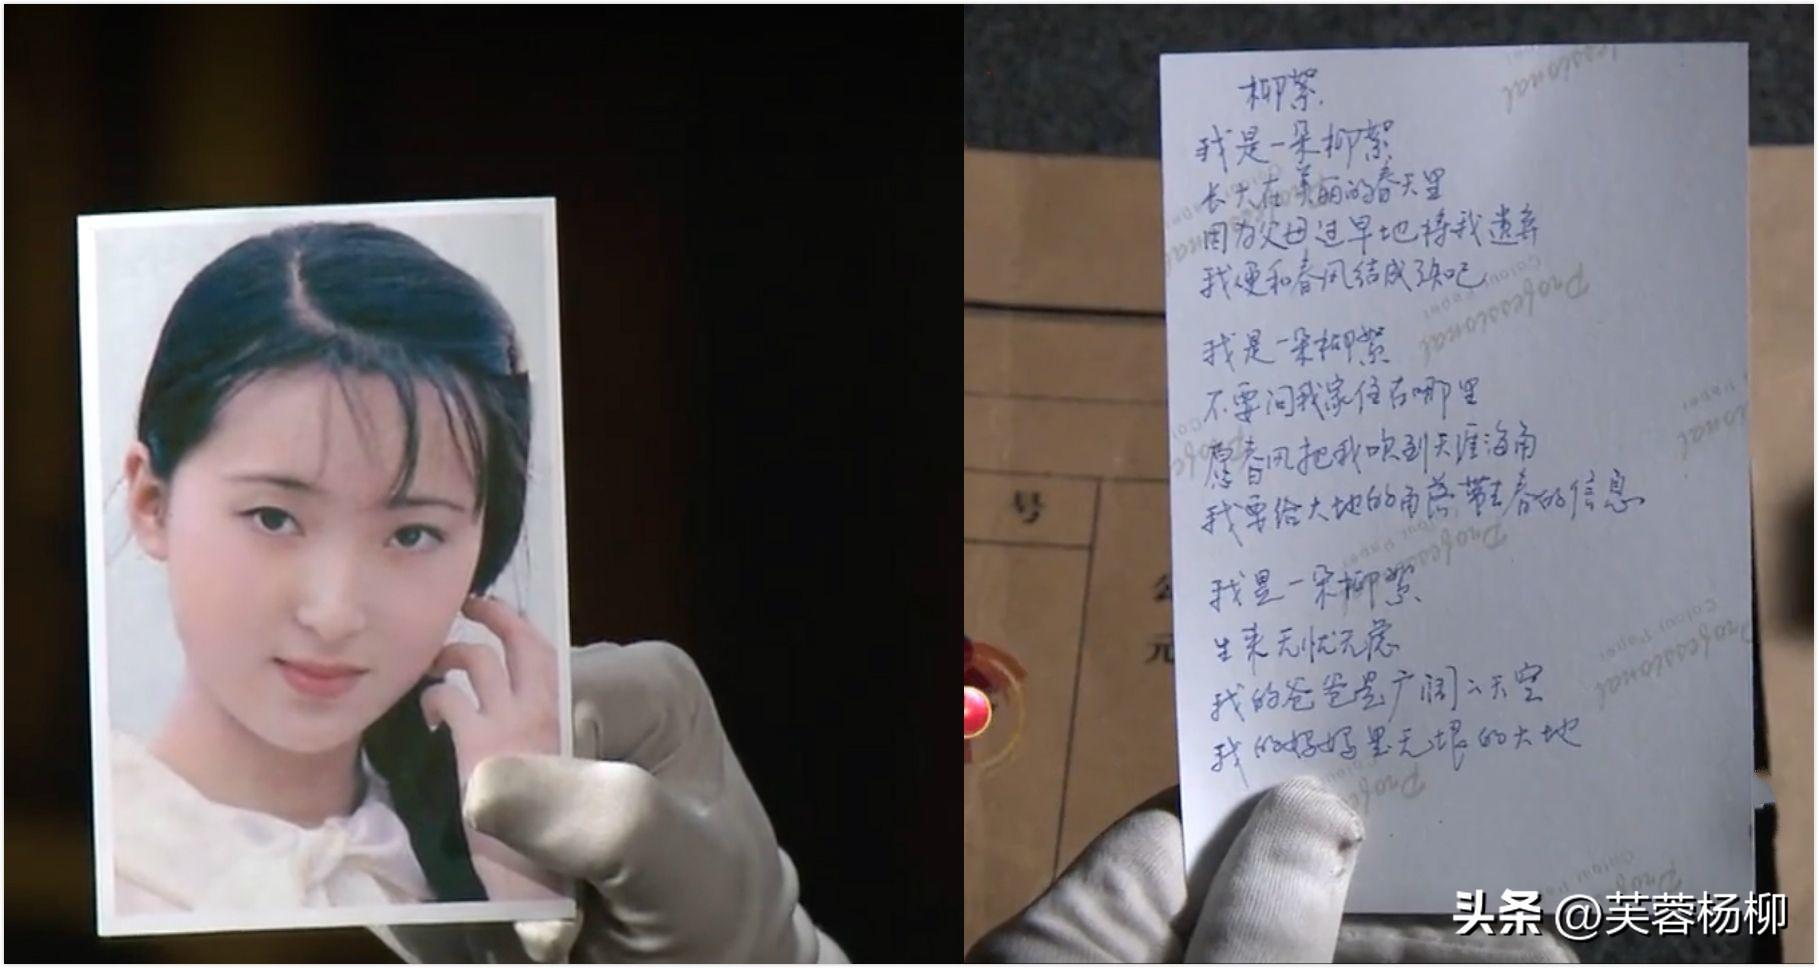 柳絮
我是一朵柳絮
长大在美丽的春天里
因为父母过早地将我遗弃
我便和春风结成知己
我是一朵柳絮
不要问我家住在哪里
愿春风把我吹到天涯海角
我要给大地的角落带去春的信息
我是一朵柳絮
生来无忧无虑
我的爸爸是广阔的天空
我的妈妈是无垠的大地
Professional
Colour Paper
号
元
头条 @芙蓉杨柳